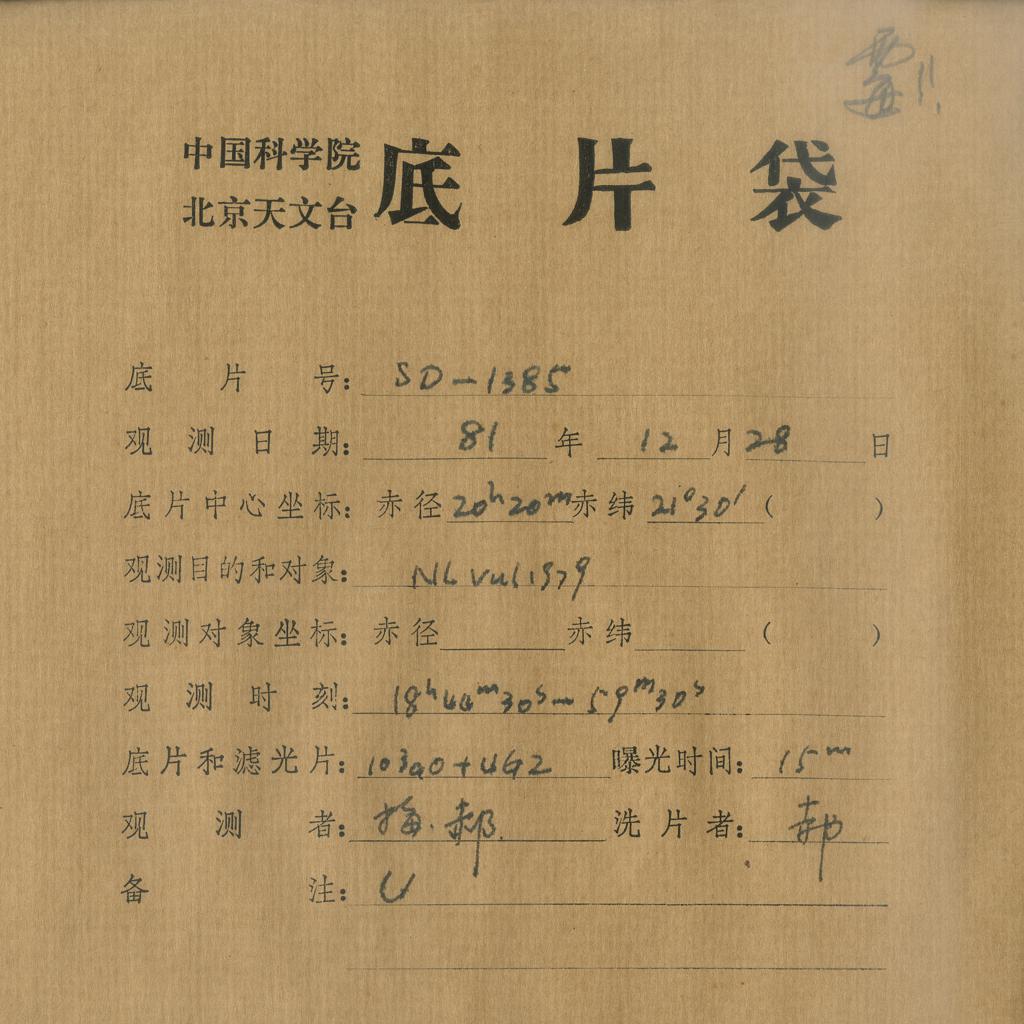 中国科学院
北京天文台
底片袋
底片号: SD-1385
观测日期: 81年 12月28日
底片中心坐标: 赤径20h20m赤纬21°30′( )
观测目的和对象: Nh Vul 1979
观测对象坐标: 赤径 赤纬 ( )
观测时刻: 18h44m30s—59m30s
底片和滤光片: 103aO+UG2 曝光时间: 15m
观测者: 梅.郝. 洗片者: 郝
备注: U